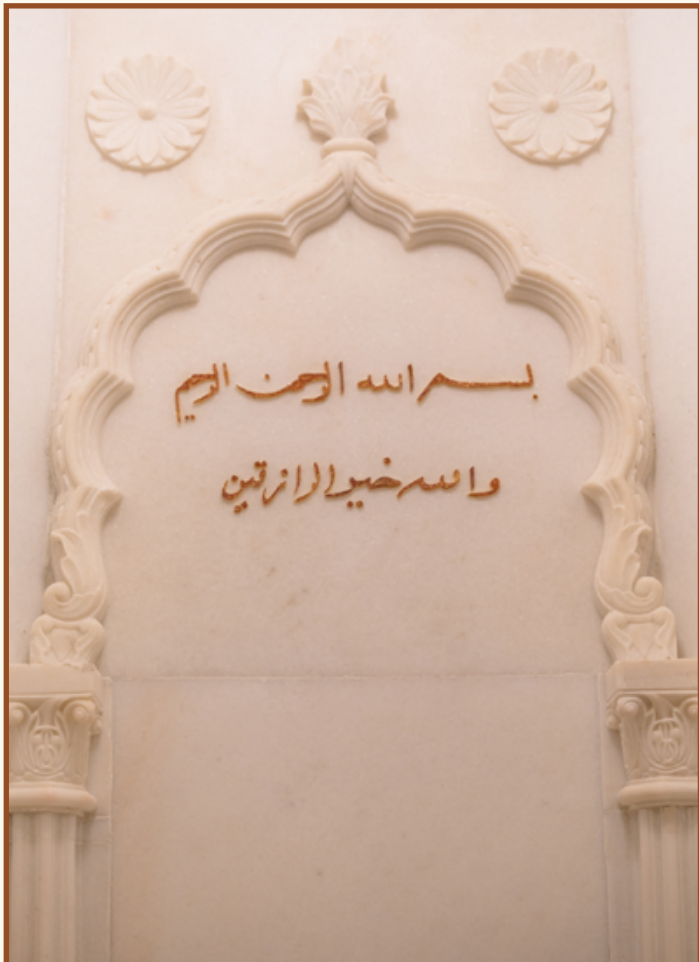 بسم الله الرحمن الرحيم
والله خير الرازقين